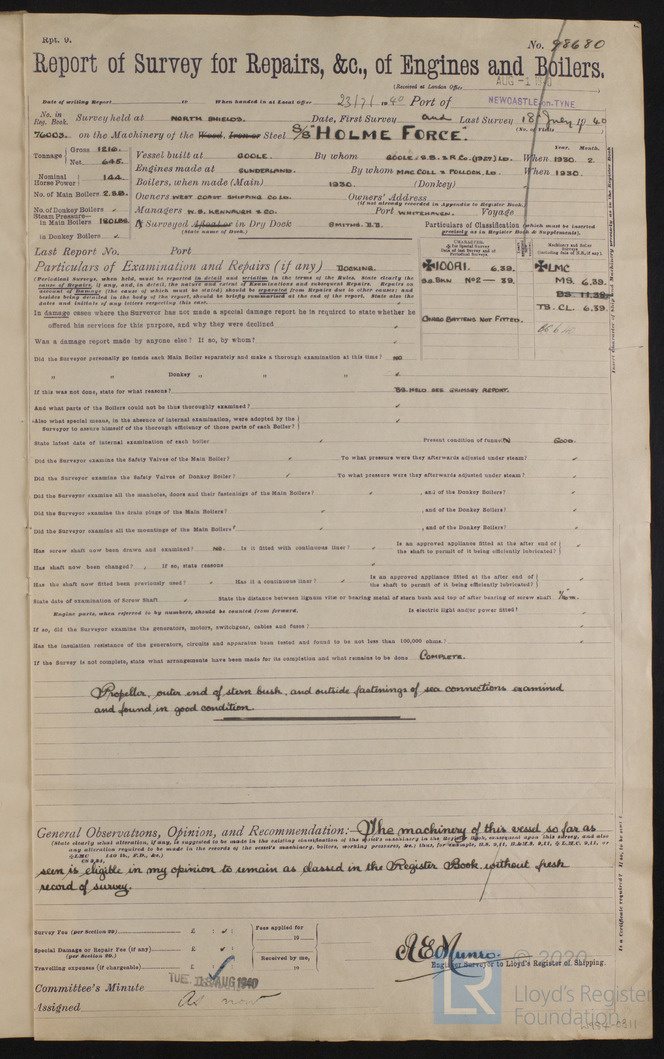 Rpt. 9.
No. 98680
Report of Survey for Repairs, &c., of Engines and Boilers.
(Received at London Office
AUG -1 19
Date of writing Report 19 When handed in at Local Office 23/7/1940 Port of NEWCASTLE-on-TYNE
No. in Reg. Book. Survey held at NORTH SHIELDS. Date, First Survey and Last Survey 18th July 1940
(No. of Visits
76003. on the Machinery of the Wood, Iron or Steel S/S "HOLME FORCE".
Tonnage Gross 1216. Net 645.
Vessel built at GOOLE. By whom GOOLE. S.B. & R. Co. (1927) LD. When 1930. 2.
Year. Month.
Engines made at SUNDERLAND. By whom MAC COLL & POLLOCK, LD. When 1930.
Nominal Horse Power 144
Boilers, when made (Main) 1930. (Donkey)
No. of Main Boilers 2.SB.
Owners WEST COAST SHIPPING CO LD. Owners' Address
(If not already recorded in Appendix to Register Book.)
No. of Donkey Boilers
Managers W. S. KENNAUGH & CO. Port WHITEHAVEN. Voyage
Steam Pressure in Main Boilers 180 LBS.
in Donkey Boilers
If Surveyed Afloat or in Dry Dock SMITHS. D.D.
(State name of Dock.)
Particulars of Classification (which must be inserted precisely as in Register Book & Supplements).
Last Report No. Port
Particulars of Examination and Repairs (if any) DOCKING.
✠100A1. 6,39.
SS.BKN No2 - 39.
CARGO BATTENS NOT FITTED.
✠LMC
MS. 6,39.
BS. 11,38
TS. CL. 6.39.
(Periodical Surveys, when held, must be reported in detail and seriatim in the terms of the Rules. State clearly the cause of Repairs, if any, and, in detail, the nature and extent of Examinations and subsequent Repairs. Repairs on account of Damage (the cause of which must be stated) should be separated from Repairs due to other causes; and besides being detailed in the body of the report, should be briefly summarised at the end of the report. State also the dates and initials of any letters respecting this case.
In damage cases where the Surveyor has not made a special damage report he is required to state whether he
offered his services for this purpose, and why they were declined
Was a damage report made by anyone else? If so, by whom?
Did the Surveyor personally go inside each Main Boiler separately and make a thorough examination at this time? NO
„ „ Donkey „ „ „
If this was not done, state for what reasons? BS HELD SEE GRIMSBY REPORT.
And what parts of the Boilers could not be thus thoroughly examined?
Also what special means, in the absence of internal examination, were adopted by the Surveyor to assure himself of the thorough efficiency of those parts of each Boiler?
State latest date of internal examination of each boiler Present condition of funnel(s) GOOD.
Did the Surveyor examine the Safety Valves of the Main Boiler? To what pressure were they afterwards adjusted under steam?
Did the Surveyor examine the Safety Valves of Donkey Boiler? To what pressure were they afterwards adjusted under steam?
Did the Surveyor examine all the manholes, doors and their fastenings of the Main Boilers? , and of the Donkey Boilers?
Did the Surveyor examine the drain plugs of the Main Boilers? , and of the Donkey Boilers?
Did the Surveyor examine all the mountings of the Main Boilers? , and of the Donkey Boilers?
Has screw shaft now been drawn and examined? NO. Is it fitted with continuous liner? Is an approved appliance fitted at the after end of the shaft to permit of it being efficiently lubricated?
Has shaft now been changed? If so, state reasons
Has the shaft now fitted been previously used? Has it a continuous liner? Is an approved appliance fitted at the after end of the shaft to permit of it being efficiently lubricated?
State date of examination of Screw Shaft State the distance between lignum vitæ or bearing metal of stern bush and top of after bearing of screw shaft
Engine parts, when referred to by numbers, should be counted from forward. Is electric light and/or power fitted?
If so, did the Surveyor examine the generators, motors, switchgear, cables and fuses?
Has the insulation resistance of the generators, circuits and apparatus been tested and found to be not less than 100,000 ohms?
If the Survey is not complete, state what arrangements have been made for its completion and what remains to be done COMPLETE.
Propeller, outer end of stern bush, and outside fastenings of sea connections examined
and found in good condition.
General Observations, Opinion, and Recommendation:- The machinery of this vessel so far as
(State clearly what alteration, if any, is suggested to be made in the existing classification of the vessel's machinery in the Register Book, consequent upon this survey, and also any alteration required to be made in the records of the vessel's machinery, boilers, working pressures, &c.; thus, for example, B.S. 9,11, B.&M.S. 9,11, or ✠LMC 9,11, or ✠LMC 140 lb., F.D., &c.)
CS 3,34,
seen is eligible in my opinion to remain as classed in the Register Book, without fresh
record of survey.
Survey Fee (per Section 29) £ : :
Special Damage or Repair Fee (if any) £ : :
(per Section 29.)
Travelling expenses (if chargeable) £ : :
Fees applied for
19
Received by me,
19
A E Munro.
Engineer Surveyor to Lloyd's Register of Shipping.
Committee's Minute TUE. 13 AUG 1940
Assigned As now
© 2020
LR
Lloyd's Register
Foundation